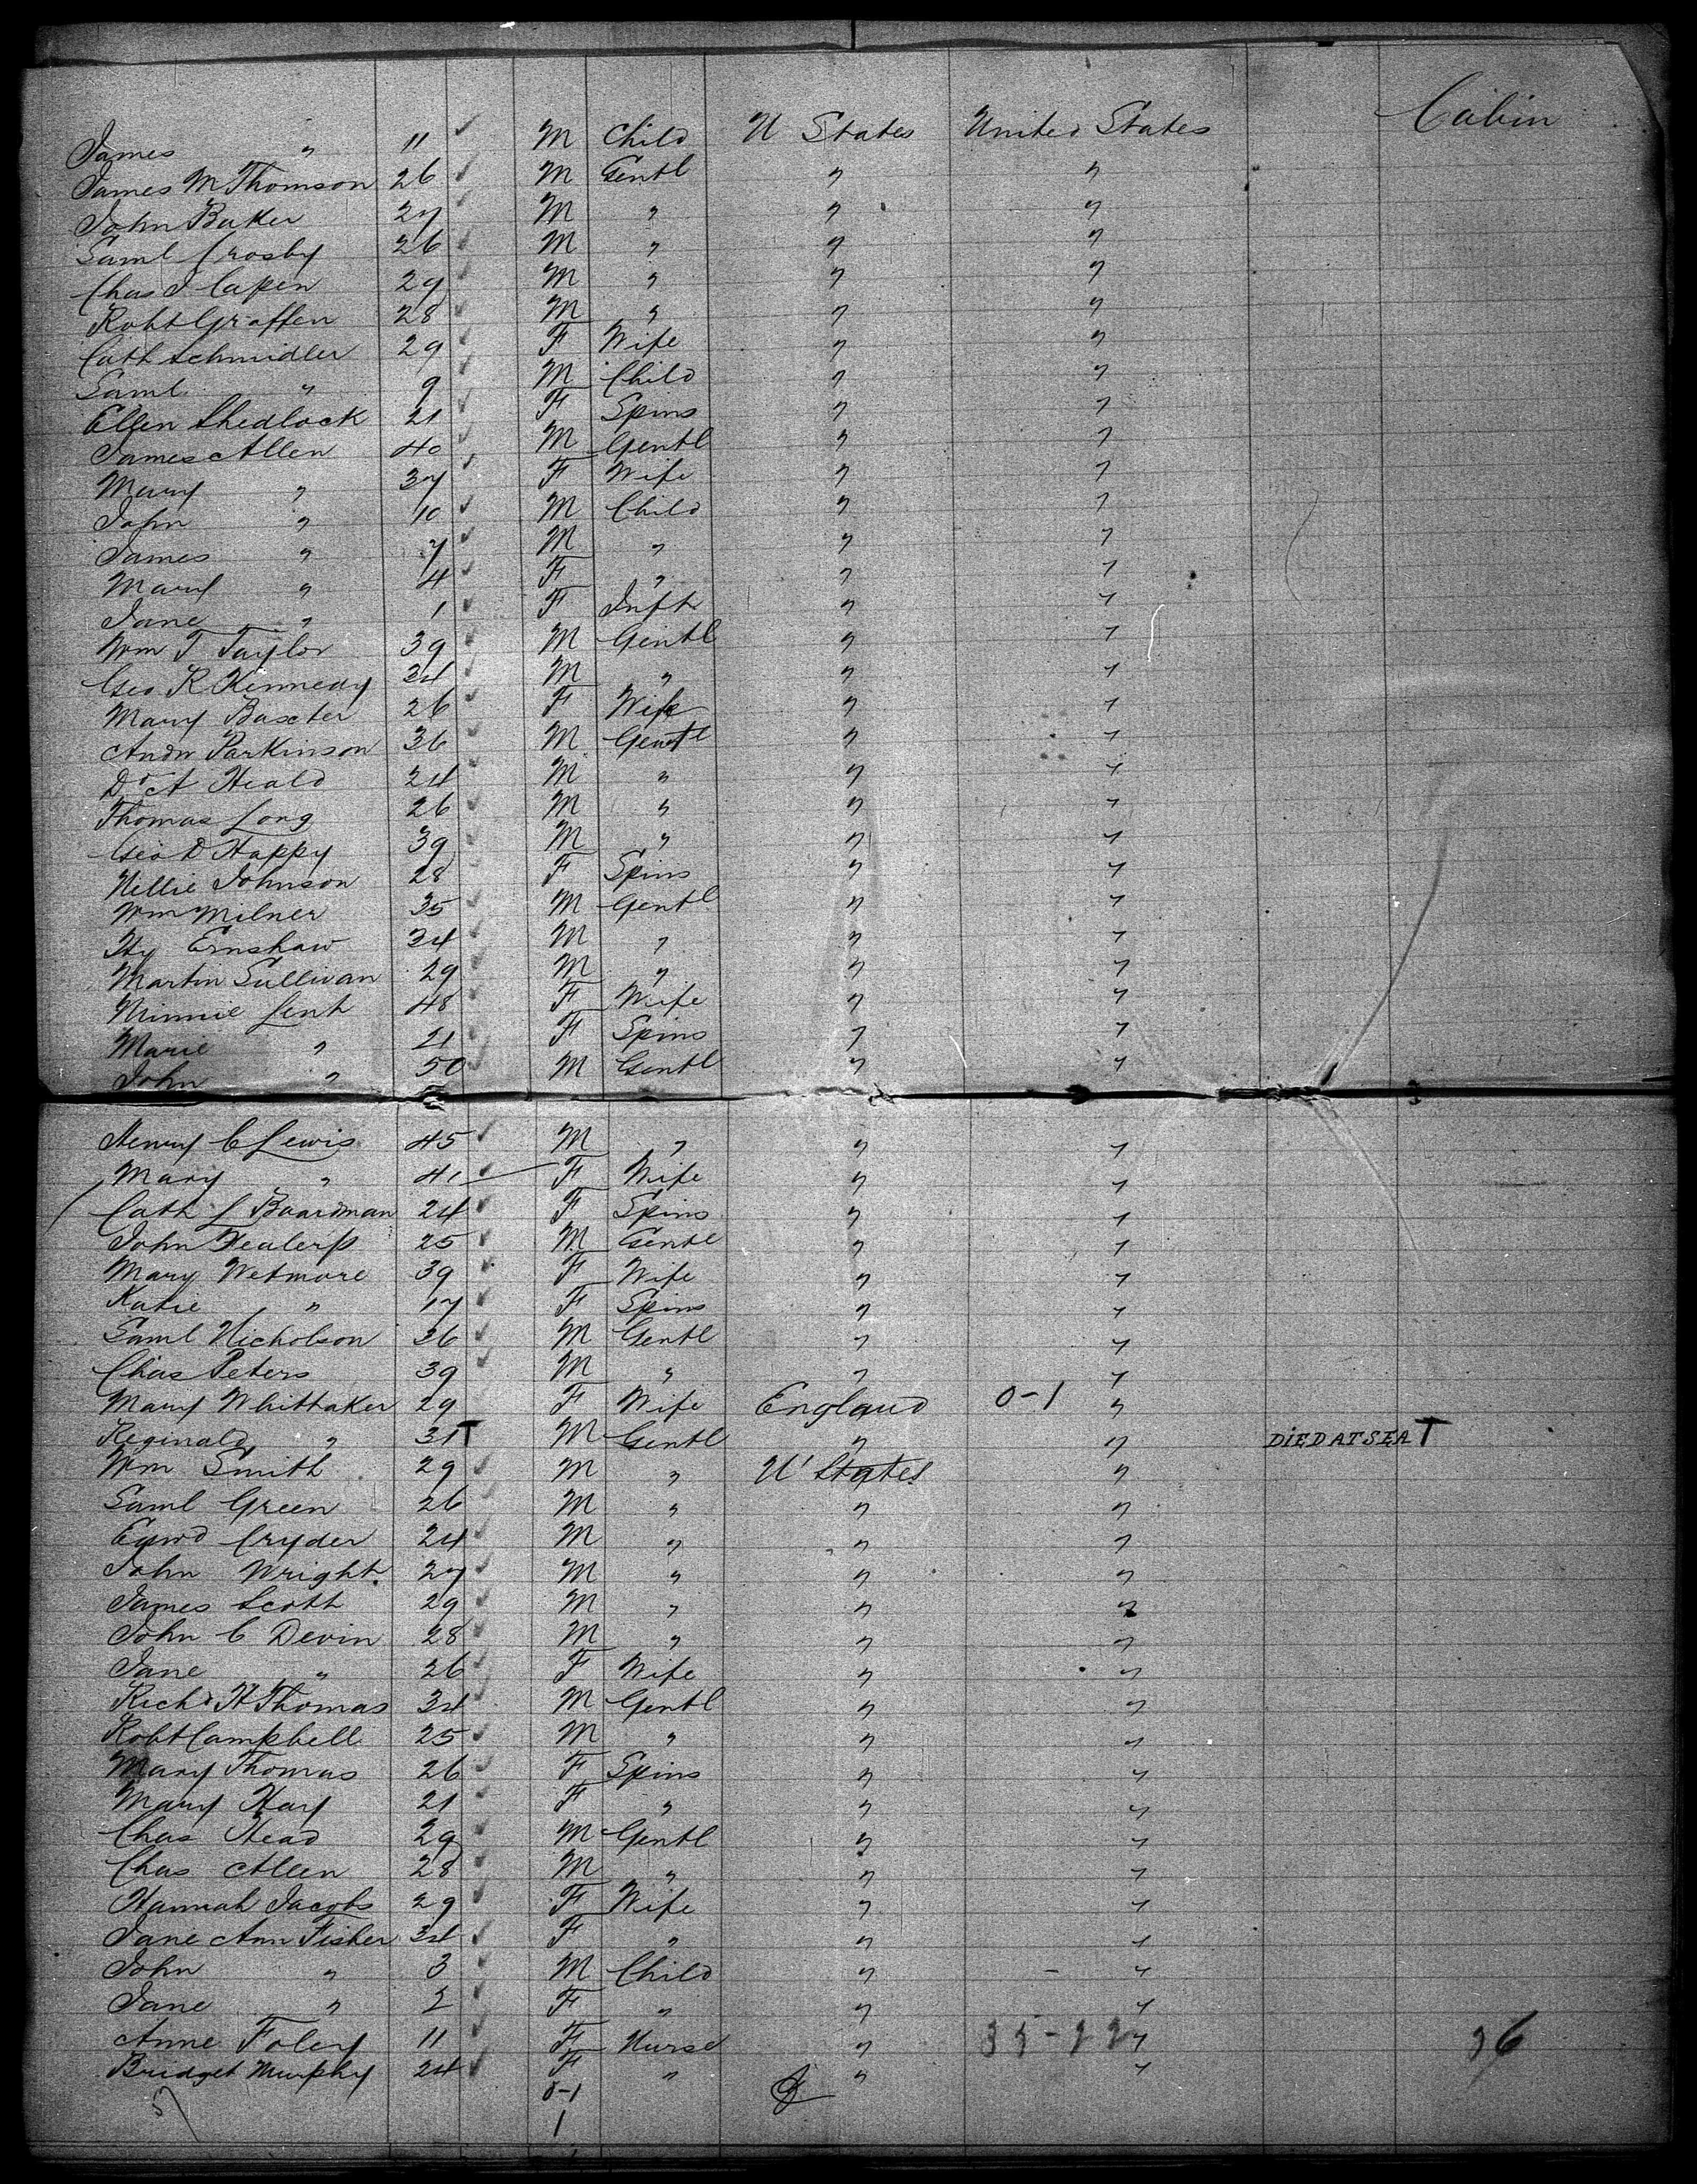 James " 11 M Child U States United States Cabin
James M Thomson 26 M Gentl " "
John Baker 27 M " " "
Saml Crosby 26 M " " "
Chas J Capen 29 M " " "
Robt Graffen 28 M " " "
Cath Schmidler 29 F Wife " "
Saml " 9 M Child " "
Ellen Shedlock 21 F Spins " "
James Allen 40 M Gentl " "
Mary " 37 F Wife " "
John " 10 M Child " "
James " 7 M " " "
Mary " 4 F " " "
Jane " 1 F Inft " "
Wm T Taylor 39 M Gentl " "
Geo R Kennedy 34 M " " "
Mary Baxter 26 F Wife " "
Andw Parkinson 36 M Gentl " "
Dr A Heald 24 M " " "
Thomas Long 26 M " " "
Geo D Happy 39 M " " "
Nellie Johnson 28 F Spins " "
Wm Milner 35 M Gentl " "
Hy Ernshaw 34 M " " "
Martin Sullivan 29 M " " "
Minnie Lent 48 F Wife " "
Marie " 21 F Spins " "
John " 50 M Gentl " "
Henry C Lewis 45 M " " "
Mary " 41 F Wife " "
Cath L Boardman 24 F Spins " "
John 25 M Gentl " "
Mary Wetmore 39 F Wife " "
Katie " 17 F Spins " "
Saml Nicholson 36 M Gentl " "
Chas Peters 39 M " " "
Mary Whittaker 29 F Wife England 0-1 "
Reginald " 31 T M Gentl " " DIED AT SEA T
Wm Smith 29 M " U States "
Saml Green 26 M " " "
Edwd Cryder 24 M " " "
John Wright 27 M " " "
James Scott 29 M " " "
John C Devin 28 M " " "
Jane " 26 F Wife " "
Richd H Thomas 34 M Gentl " "
Robt Campbell 25 M " " "
Mary Thomas 26 F Spins " "
Mary Hay 21 F " " "
Chas Head 29 M Gentl " "
Chas Allen 28 M " " "
Hannah Jacobs 29 F Wife " "
Jane Ann Fisher 34 F " " "
John " 3 M Child " "
Jane " 2 F " " "
Anne Foley 11 F Nurse " 35-22 " 36
Bridget Murphy 24 F " " "
0-1
1